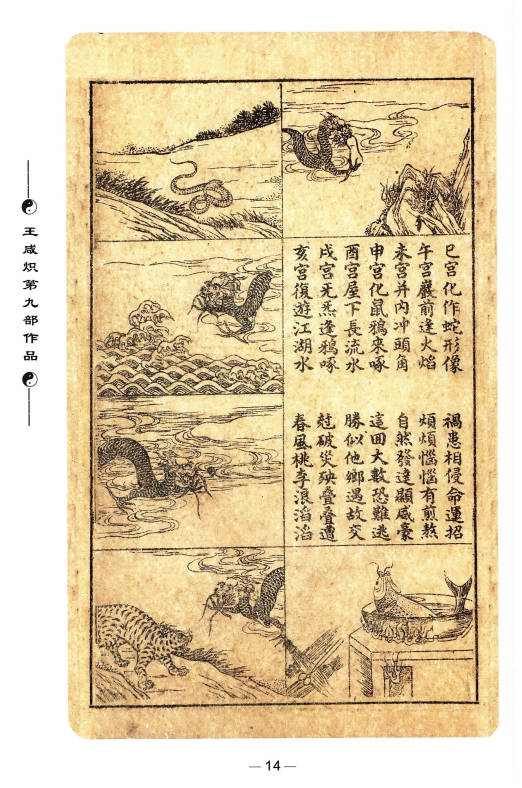 王咸炽第九部作品
巳宫化作蛇形像 禍患相侵命運招
午宫巖前逢火焰 煩煩惱惱有煎熬
未宫井内冲頭角 自然發達顯威豪
申宫化鼠鴉來啄 這囬大數恐難逃
酉宫屋下長流水 勝似他鄉遇故交
戌宫无炁逢鴉啄 尅破災殃疊疊遭
亥宫復遊江湖水 春風桃李浪滔滔
— 14 —